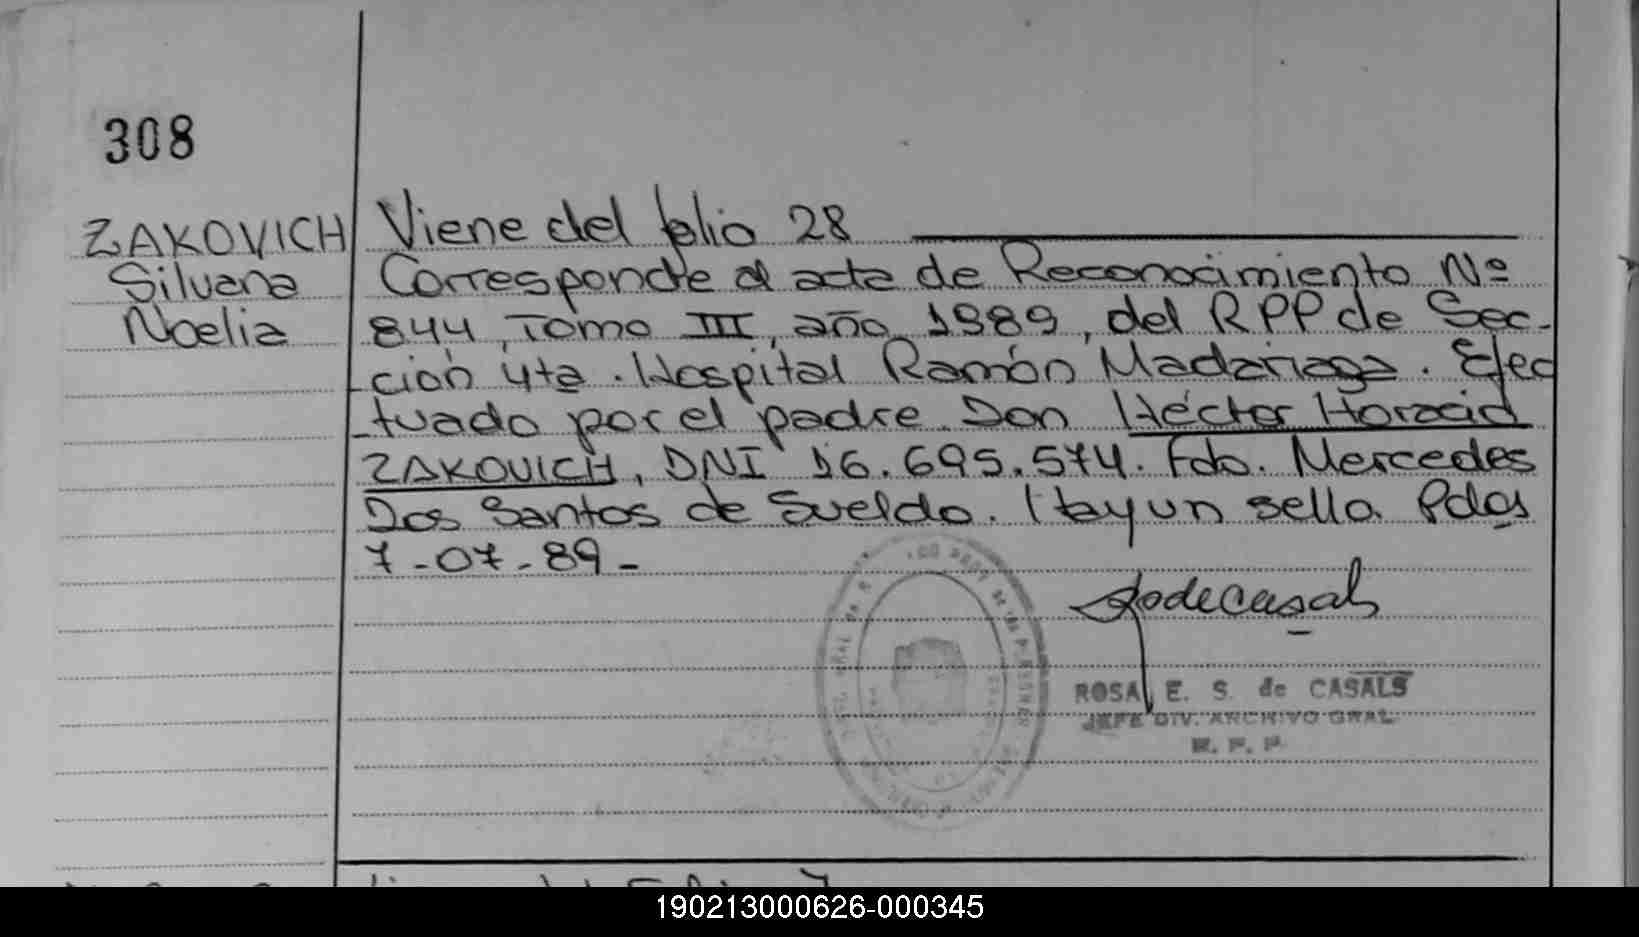 308
ZAKOVICH
Silvana
Noelia
Viene del folio 28
Corresponde al acta de Reconocimiento Nº
844, Tomo III, año 1989, del RPP de Sec-
ción 4ta. Hospital Ramón Madariaga. Efec
tuado por el padre Don Héctor Horacio
ZAKOVICH, DNI 16.695.574. Fdo. Mercedes
Dos Santos de Sueldo. Hay un sello. Pdas
7-07-89-
ROSA E. S. de CASALS
JEFE DIV. ARCHIVO GRAL.
R. P. P.
190213000626-000345